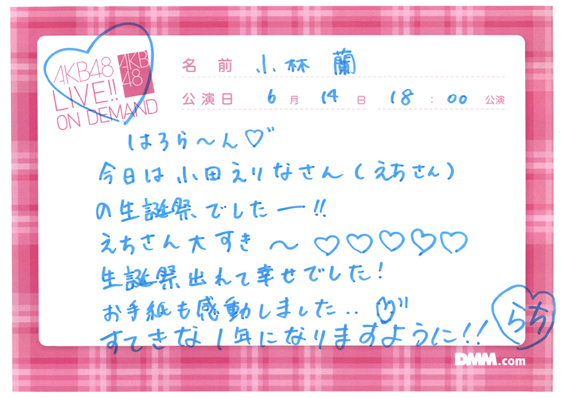 AKB48
LIVE!!
ON DEMAND
AKB
48
名前 小林 蘭
公演日 6月 14日 18:00 公演
はろら〜ん♡
今日は小田えりなさん(えちさん)
の生誕祭でしたー!!
えちさん大すき〜♡♡♡♡♡
生誕祭出れて幸せでした!
お手紙も感動しました..♡
すてきな1年になりますように!!
らち
DMM.com